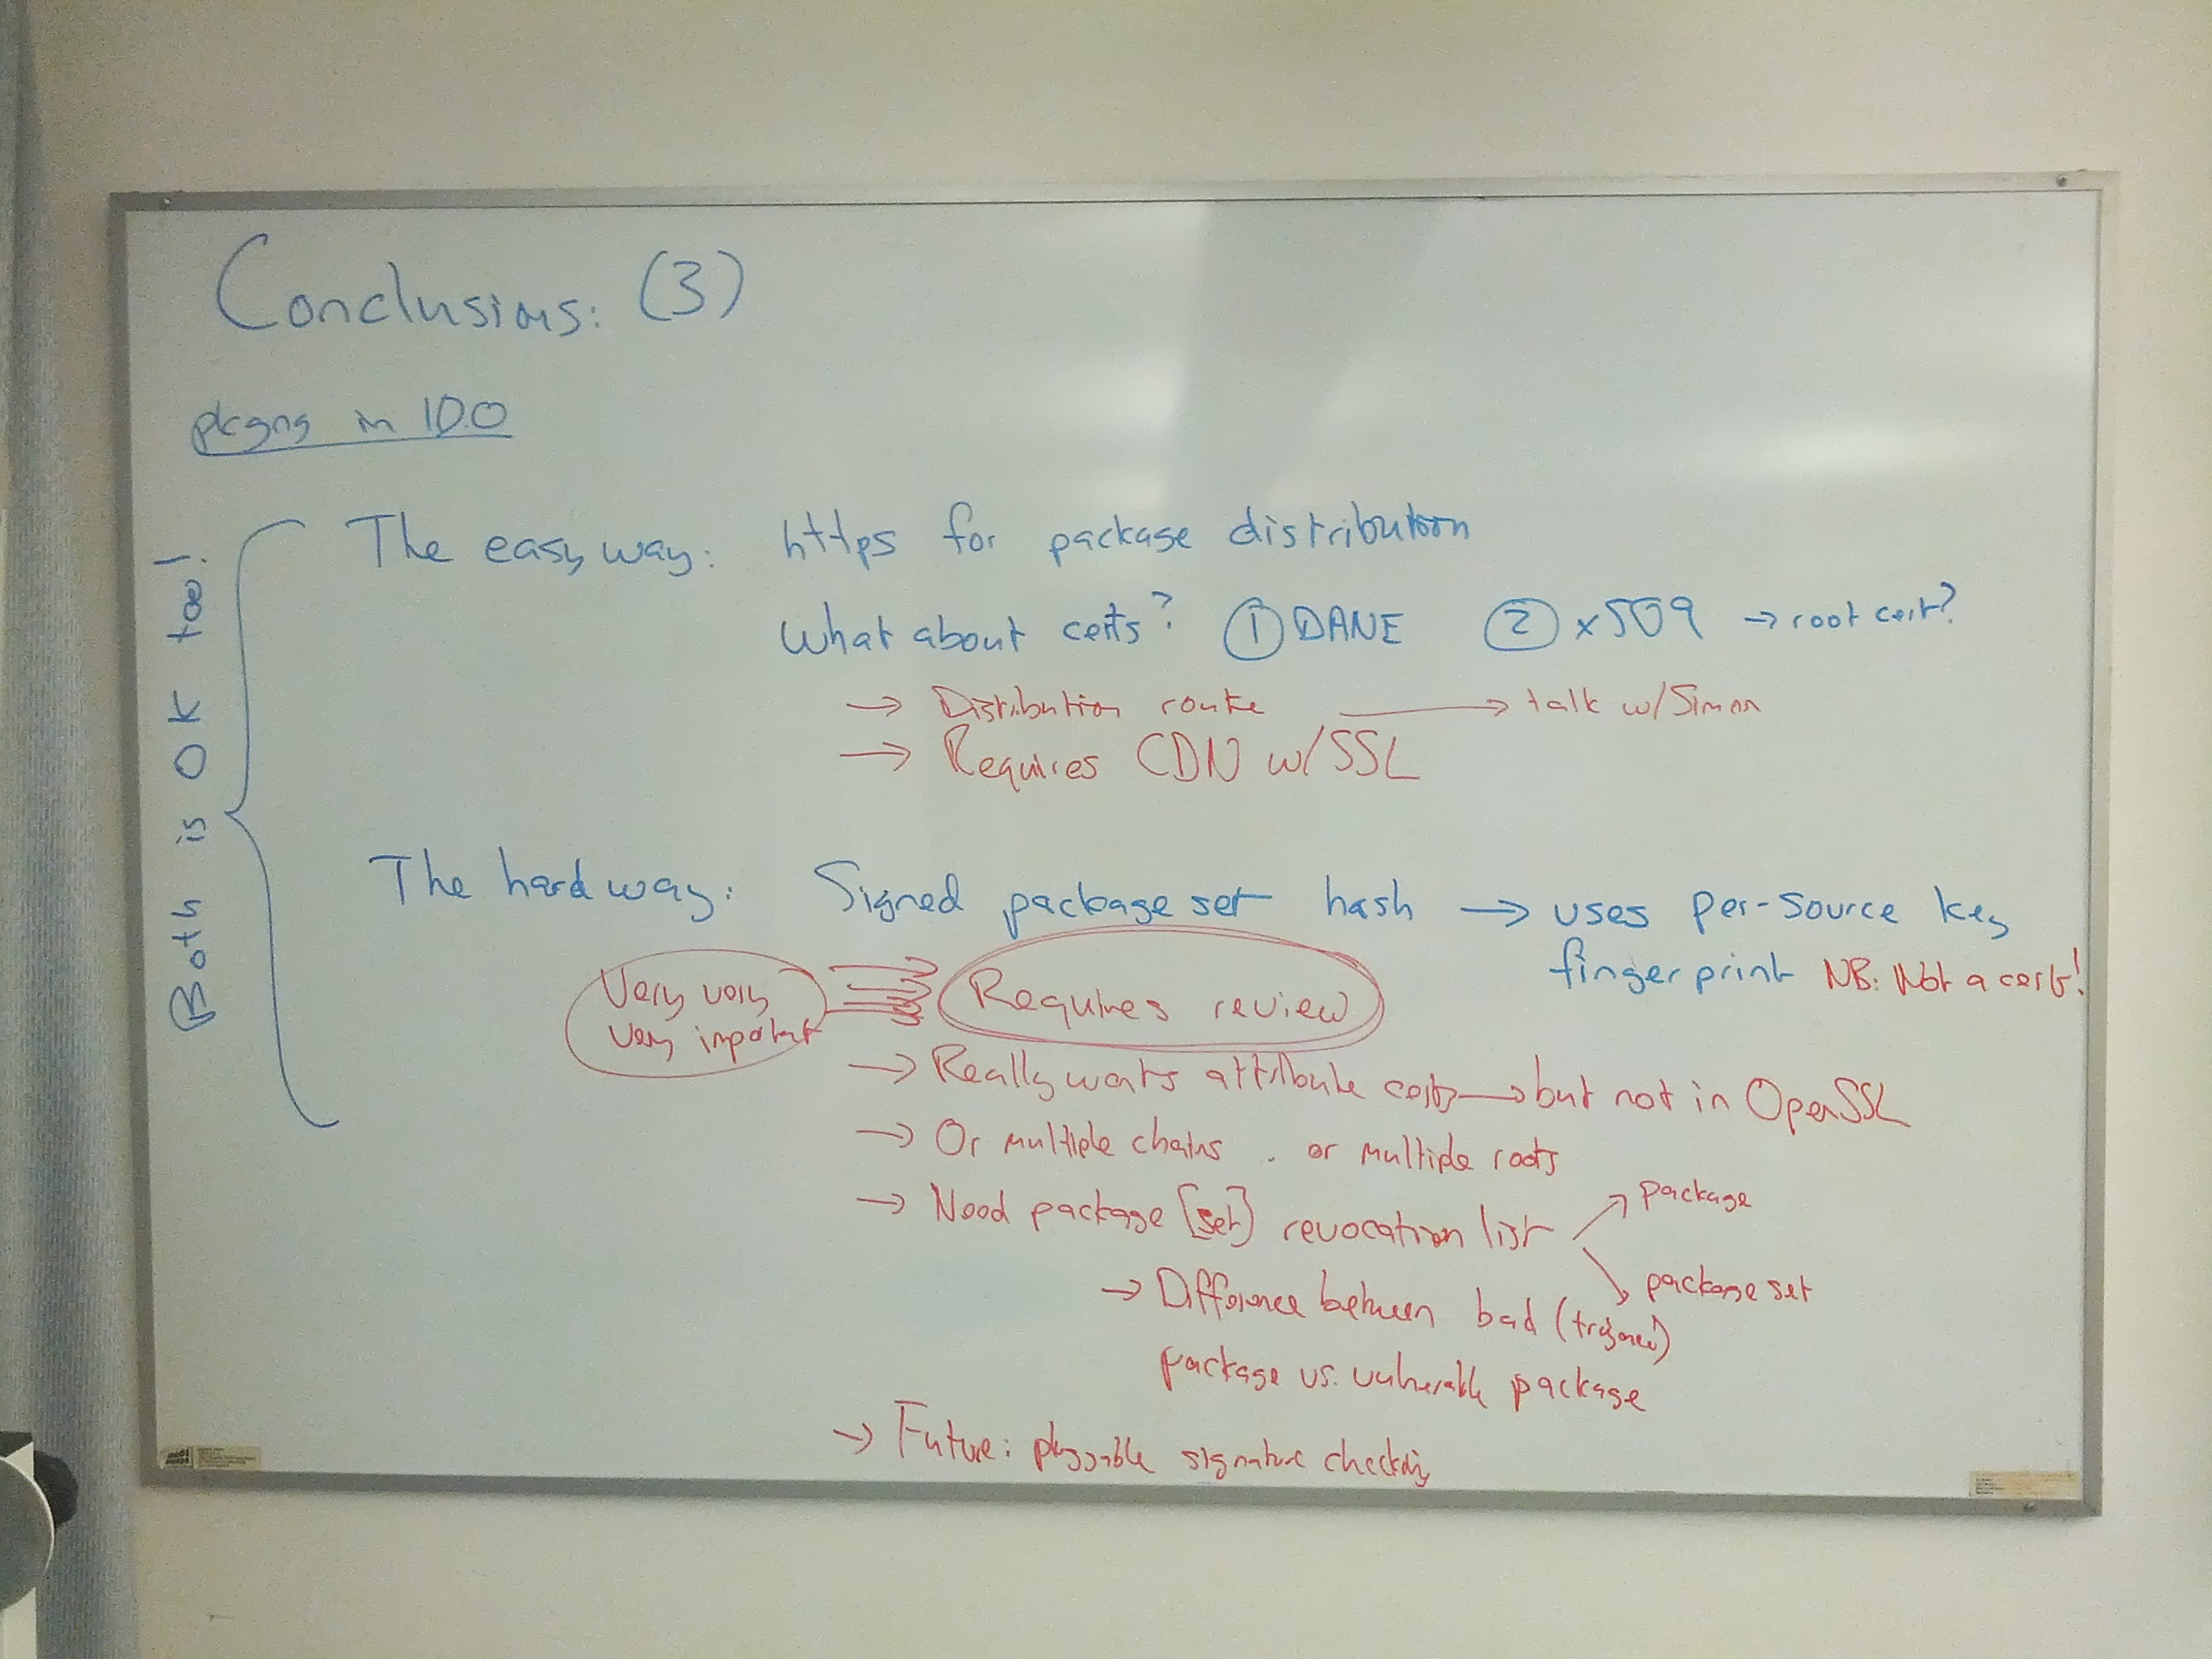 Conclusions: (3)
pkgng in 10.0
Both is OK too!
The easy way: https for package distribution
What about certs? ① DANE ② x509 → root cert?
→ Distribution route → talk w/ Simon
→ Requires CDN w/ SSL
The hard way: Signed package set hash → uses per-source key
fingerprint NB: Not a cert!
Very very
very important
Requires review
→ Really wants attribute certs → but not in OpenSSL
→ Or multiple chains, or multiple roots
→ Need package [set] revocation list
package
package set
→ Difference between bad (trojaned)
package vs. vulnerable package
→ Future: pluggable signature checking